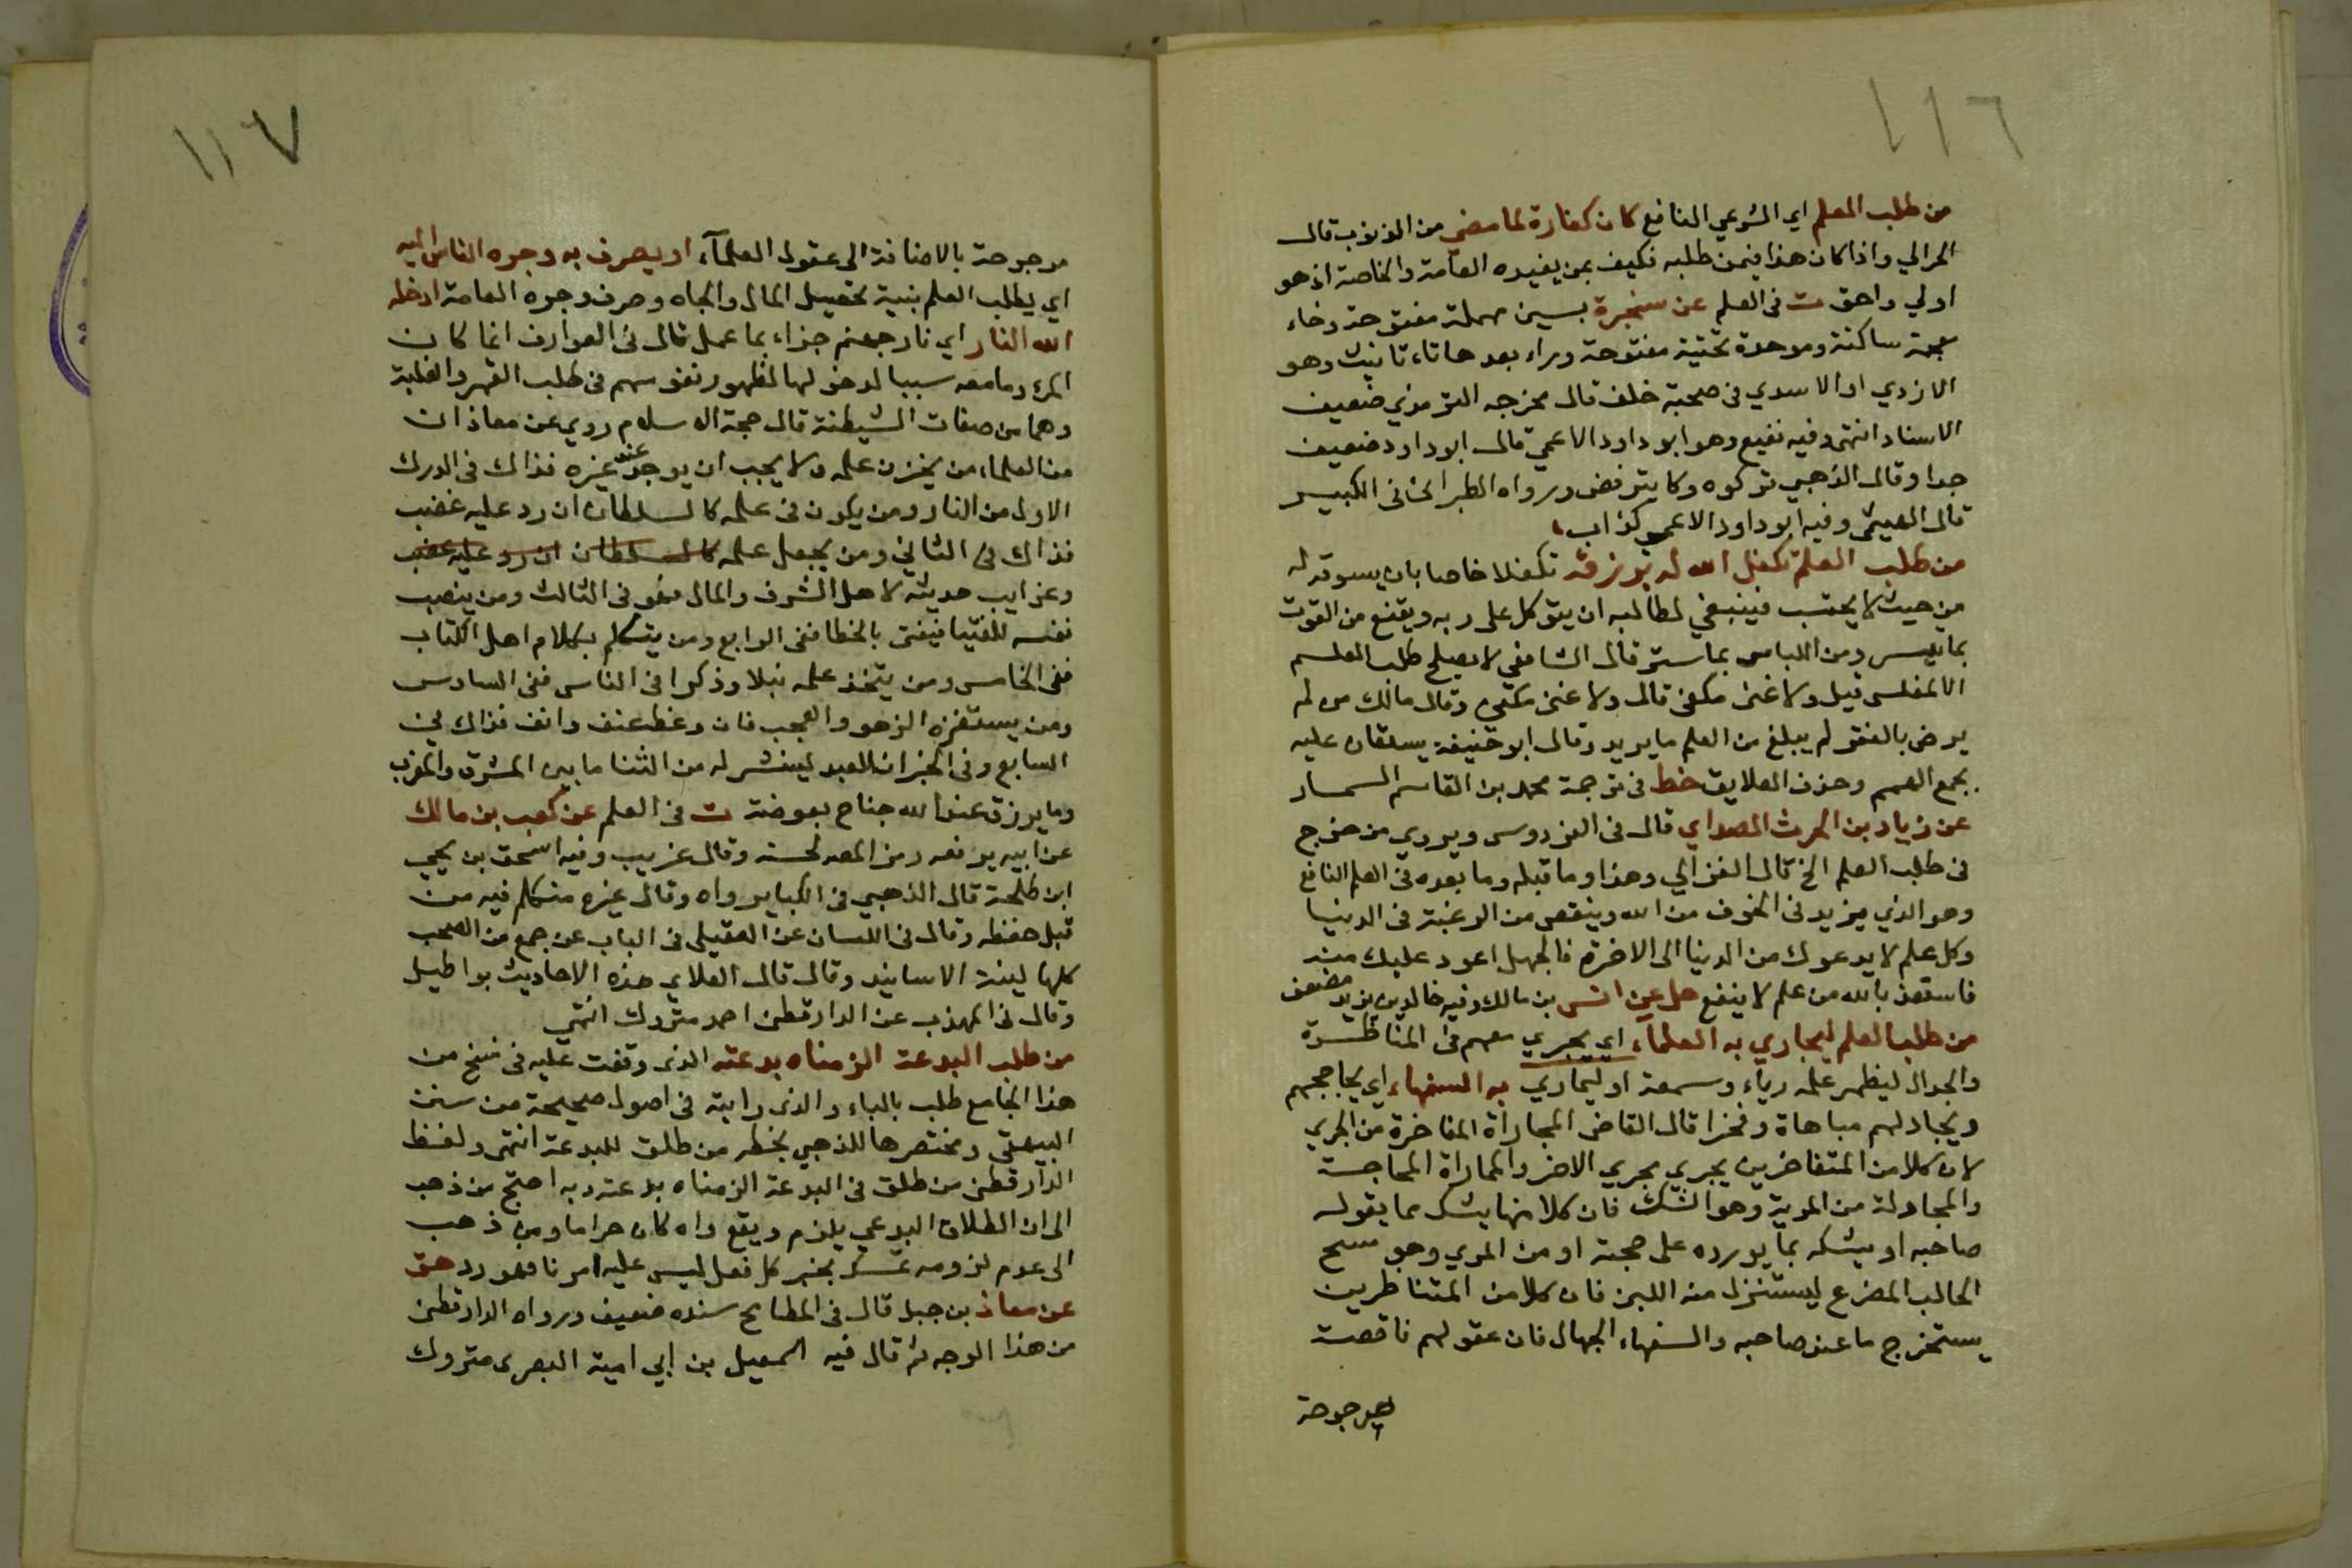 ١١٦
من طلب العلم اي الشرعي النافع كان كفارة لما مضي من الذنوب قال
الحرالي واذا كان هذا فيمن طلبه فكيف بمن يفيده العامة والخاصة اذ هو
اولي واحق ت في العلم عن سخبرة بسين مهملة مفتوحة وخاء
معجمة ساكنة وموحدة تحتية مفتوحة وراء بعدها تاء تانيث وهو
الازدي او الاسدي في صحبته خلف قال مخرجه الترمذي ضعيف
الاسناد انتهى وفيه نفيع وهو ابو داود الاعمي قال ابو داود ضعيف
جدا وقال الذهبي تركوه وكا يترفض ورواه الطبراني في الكبير
قال الهيثمي وفيه ابو داود الاعمي كذاب
من طلب العلم تكفل الله له برزقه تكفلا خاصا بان يسوقه له
من حيث لا يحتسب فينبغي لطالبه ان يتوكل على ربه ويقنع من القوت
بما تيسر ومن اللباس بما ستر قال الشافعي لا يصلح طلب العلم
الا لمفلس قيل ولا غني مكفي قال ولا غني مكفي وقال مالك من لم
يرض بالفقر لم يبلغ من العلم ما يريد وقال ابو حنيفة يستعان عليه
بجمع الهمم وحذف العلايق خط في ترجمة محمد بن القاسم السمسار
عن زياد بن الحرث الصداي قال في الفردوس ويروي من خرج
في طلب العلم الخ قال الغزالي وهذا وما قبله وما بعده في العلم النافع
وهو الذي يزيد في الخوف من الله وينقص من الرغبة في الدنيا
وكل علم لا يدعوك من الدنيا الى الاخرة فالجهل اعود عليك منه
فاستعذ بالله من علم لا ينفع حل عن انس بن مالك وفيه خالد بن يزيد مضعف
من طلب العلم ليجاري به العلماء اي يجري معهم في المناظرة
والجدال ليظهر علمه رياء وسمعة او ليماري به السفهاء اي يحاججهم
ويجادلهم مباهاة وفخرا قال القاضي المجاراة المفاخرة من الجري
لان كلا من المتفاخرين يجري مجري الاخر والمماراة المحاجة
والمجادلة من المرية وهو الشك فان كلا منهما يشك مما يقوله
صاحبه او يشكه بما يورده على حجته او من المري وهو مسح
الحالب الضرع ليستنزل منه اللبن فان كلا من المتناظرين
يستخرج ما عند صاحبه والسفهاء الجهال فان عقولهم ناقصة
مرجوحة
١١٧
مرجوحة بالاضافة الى عقول العلمآء او يصرف به وجوه الناس اليه
اي يطلب العلم بنية تحصيل المال والجاه وصرف وجوه العامة ادخله
الله النار اي نار جهنم جزاء بما عمل قال في العوارف انما كان
المرء وما معه سببا لدخولها لظهور نفوسهم في طلب القهر والغلبة
وهما من صفات الشيطنة قال حجة الاسلام روي عن معاذ ان
من العلماء من يخزن علمه ولا يحب ان يوجد عند غيره فذاك في الدرك
الاول من النار ومن يكون في علمه كالسلطان ان رد عليه غضب
فذاك في الثاني ومن يجعل علمه كالسلطان ان رد عليه غضب
وغرايب حديثه لاهل الشرف والمال فهو في الثالث ومن ينصب
نفسه للفتيا فيفتي بالخطا ففي الرابع ومن يتكلم بكلام اهل الكتاب
ففي الخامس ومن يتخذ علمه نبلا وذكرا في الناس ففي السادس
ومن يستفزه الزهو والعجب فان وعظ عنف وانف فذاك في
السابع وفي الخبر ان العبد لينشر له من الثنا ما بين المشرق والمغرب
وما يرزق عند الله جناح بعوضة ت في العلم عن كعب بن مالك
عن ابيه يرفعه رمز المصه لحسنه وقال غريب وفيه اسحق بن يحيي
ابن طلحة قال الذهبي في الكباير واه وقال غيره متكلم فيه من
قبل حفظه وقال في اللسان عن العقيلي في الباب عن جمع من الصحب
كلها لينة الاسانيد وقال قال العلاي هذه الاحاديث بواطيل
وقال في المهذب عن الدارقطني احمد متروك انتهي
من طلب البدعة الزمناه بدعته الذى وقفت عليه في نسخ من
هذا الجامع طلب بالباء والذى رايته في اصول صحيحة من سنن
البيهقى ومختصرها للذهبي بخطه من طلق للبدعة انتهى ولفظ
الدارقطني من طلق في البدعة الزمناه بدعته وبه احتج من ذهب
الى ان الطلاق البدعي يلزم ويقع وان كان حراما ومن ذهب
الى عدم لزومه تمسك بخبر كل فعل ليس عليه امرنا فهو رد هق
عن معاذ بن جبل قال في المطامح سنده ضعيف ورواه الدارقطني
من هذا الوجه ثم قال فيه اسمعيل بن ابي امية البصرى متروك